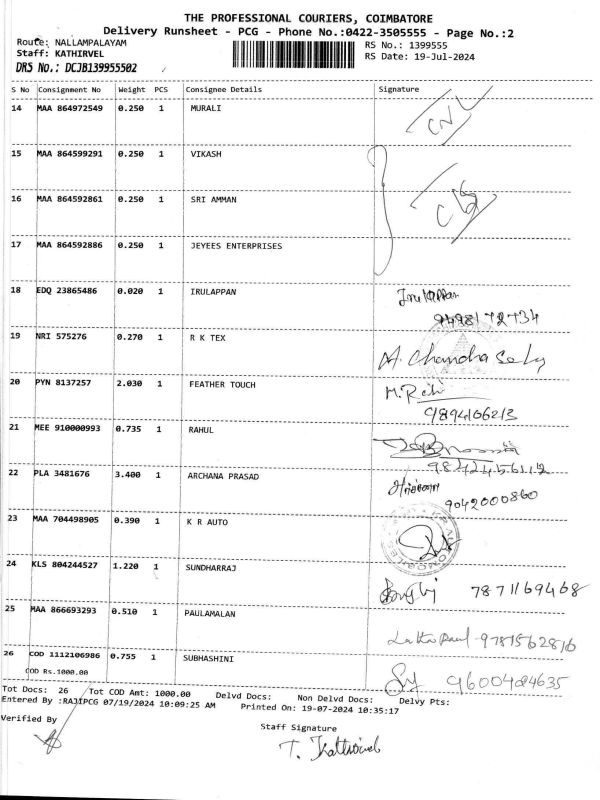 THE PROFESSIONAL COURIERS, COIMBATORE
Delivery Runsheet - PCG - Phone No.:0422-3505555 - Page No.:2
Route: NALLAMPALAYAM RS No.: 1399555
Staff: KATHIRVEL RS Date: 19-Jul-2024
DRS No.: DCJB139955502
S No Consignment No Weight PCS Consignee Details Signature
14 MAA 864972549 0.250 1 MURALI
15 MAA 864599291 0.250 1 VIKASH
16 MAA 864592861 0.250 1 SRI AMMAN
17 MAA 864592886 0.250 1 JEYEES ENTERPRISES
18 EDQ 23865486 0.020 1 IRULAPPAN Irulappan
9498172734
19 NRI 575276 0.270 1 R K TEX
20 PYN 8137257 2.030 1 FEATHER TOUCH
9894106213
21 MEE 910000993 0.735 1 RAHUL
9842456112
22 PLA 3481676 3.400 1 ARCHANA PRASAD அர்ச்சனா
9042000860
23 MAA 704498905 0.390 1 K R AUTO
24 KLS 804244527 1.220 1 SUNDHARRAJ 7871169468
25 MAA 866693293 0.510 1 PAULAMALAN 9781562816
26 COD 1112106986 0.755 1 SUBHASHINI 9600484635
COD Rs.1000.00
Tot Docs: 26 Tot COD Amt: 1000.00 Delvd Docs: Non Delvd Docs: Delvy Pts:
Entered By :RAJIPCG 07/19/2024 10:09:25 AM Printed On: 19-07-2024 10:35:17
Verified By Staff Signature
T. Kathirvel